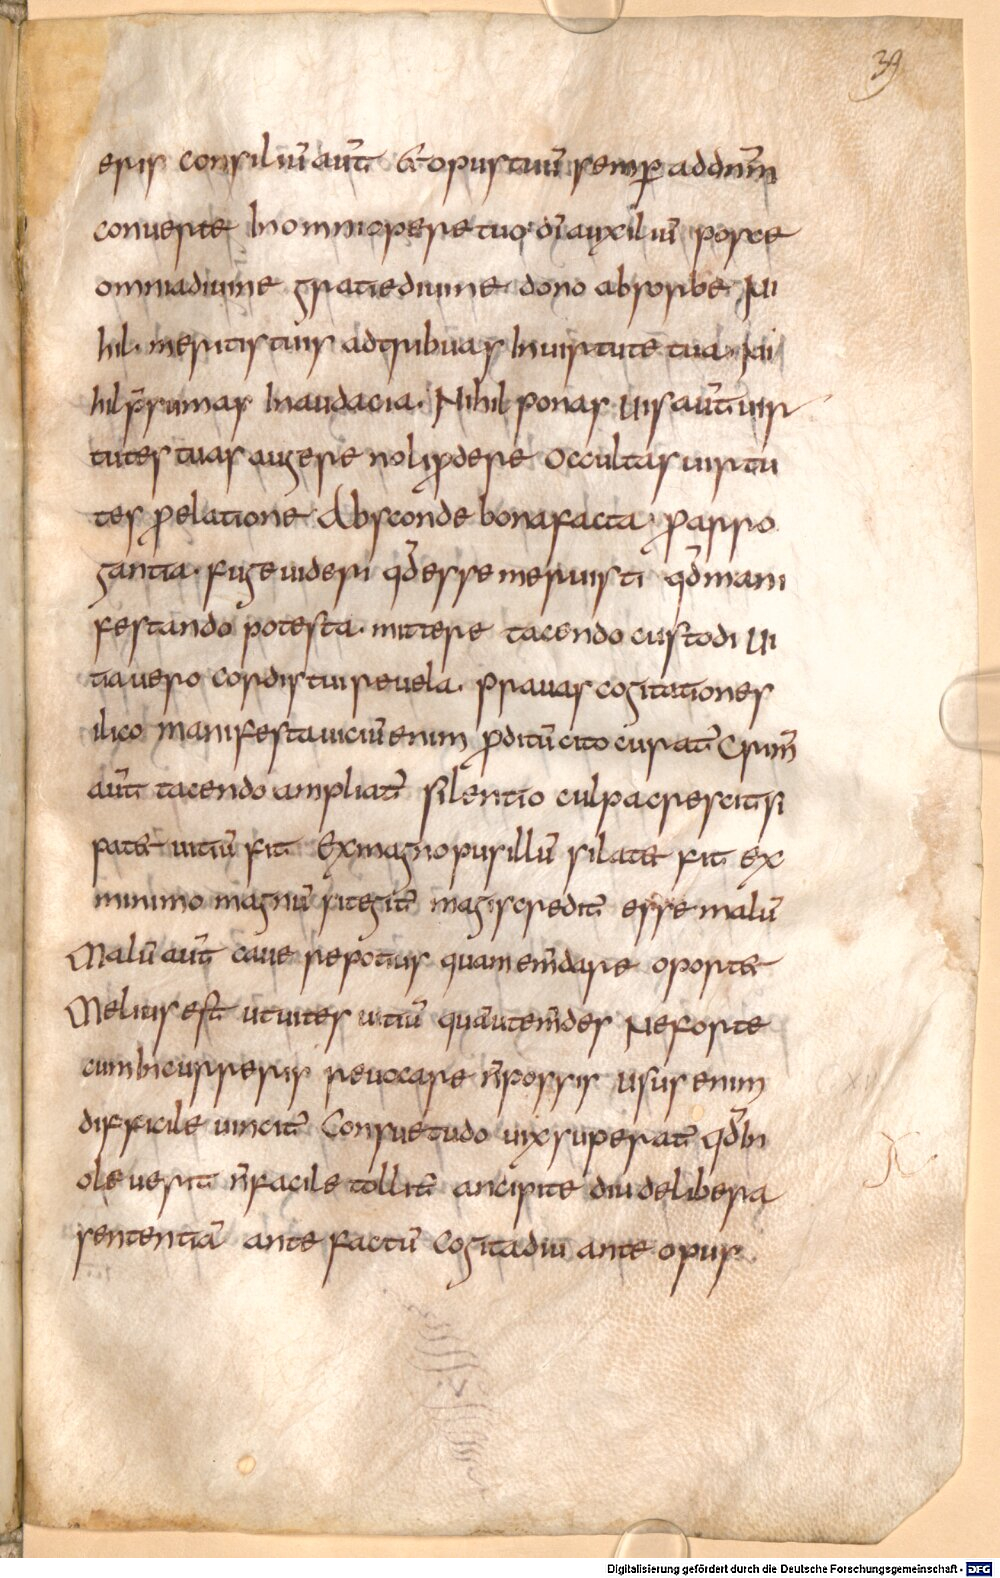 39
eris consiliū aut̄ & opus tuū semꝑ ad dn̄m
conuerte In omni opere tuo dī auxiliū posce
omnia diuine gratie diuine dono absoribe Ni
hil meritis tuis adtribuas In uirtute tua Ni
hil p̄sumas In audacia. Nihil ponas Uis aut̄ uir
tutes tuas augere noli ꝓdere Occultas uirtu
tes ꝓ elatione Absconde bona facta ꝓ arro
gantia. fuge uideri qd̄ esse meruisti qd̄ mani
festando potes ta mittere tacendo custodi Ui
tia uero cordis tui reuela. prauas cogitationes
ilico manifesta uiciū enim ꝓditū cito curat̄ Crim̄
aut̄ tacendo ampliat̄ silentio culpa crescit si
pat& uitiū fit Ex magno pusillū si lat& fit ex
minimo magnū si tegit̄ magis credit̄ esse malū
Malū aut̄ caue re potius quam em̄dare oport&
Melius est̄ ut uites uitiū quā ut em̄des Ne forte
cum Incurreris reuocare n̄ possis usus enim
difficile uincit̄ Consuetudo uix superat̄ qd̄ In
oleuerit n̄ facile tollit̄ ancipite diu delibera
sententiā ante factū Cogita diu ante opus
Digitalisierung gefördert durch die Deutsche Forschungsgemeinschaft - DFG